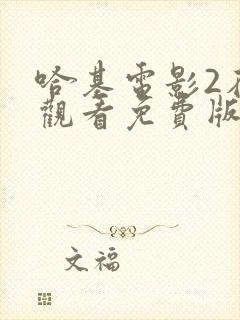 哈基電影2
觀看免費版
文福